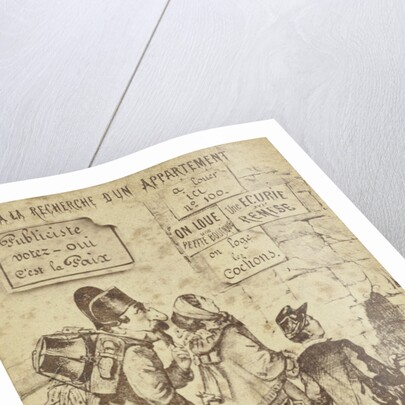 A LA RECHERCHE D'UN APPARTEMENT
Publiciste
votez-oui
C'est la Paix
à louer
ici
nº 100.
ON LOUE
PETITE BOUTIQUE
Une ECURIE
REMISE
on loge
des
cochons.